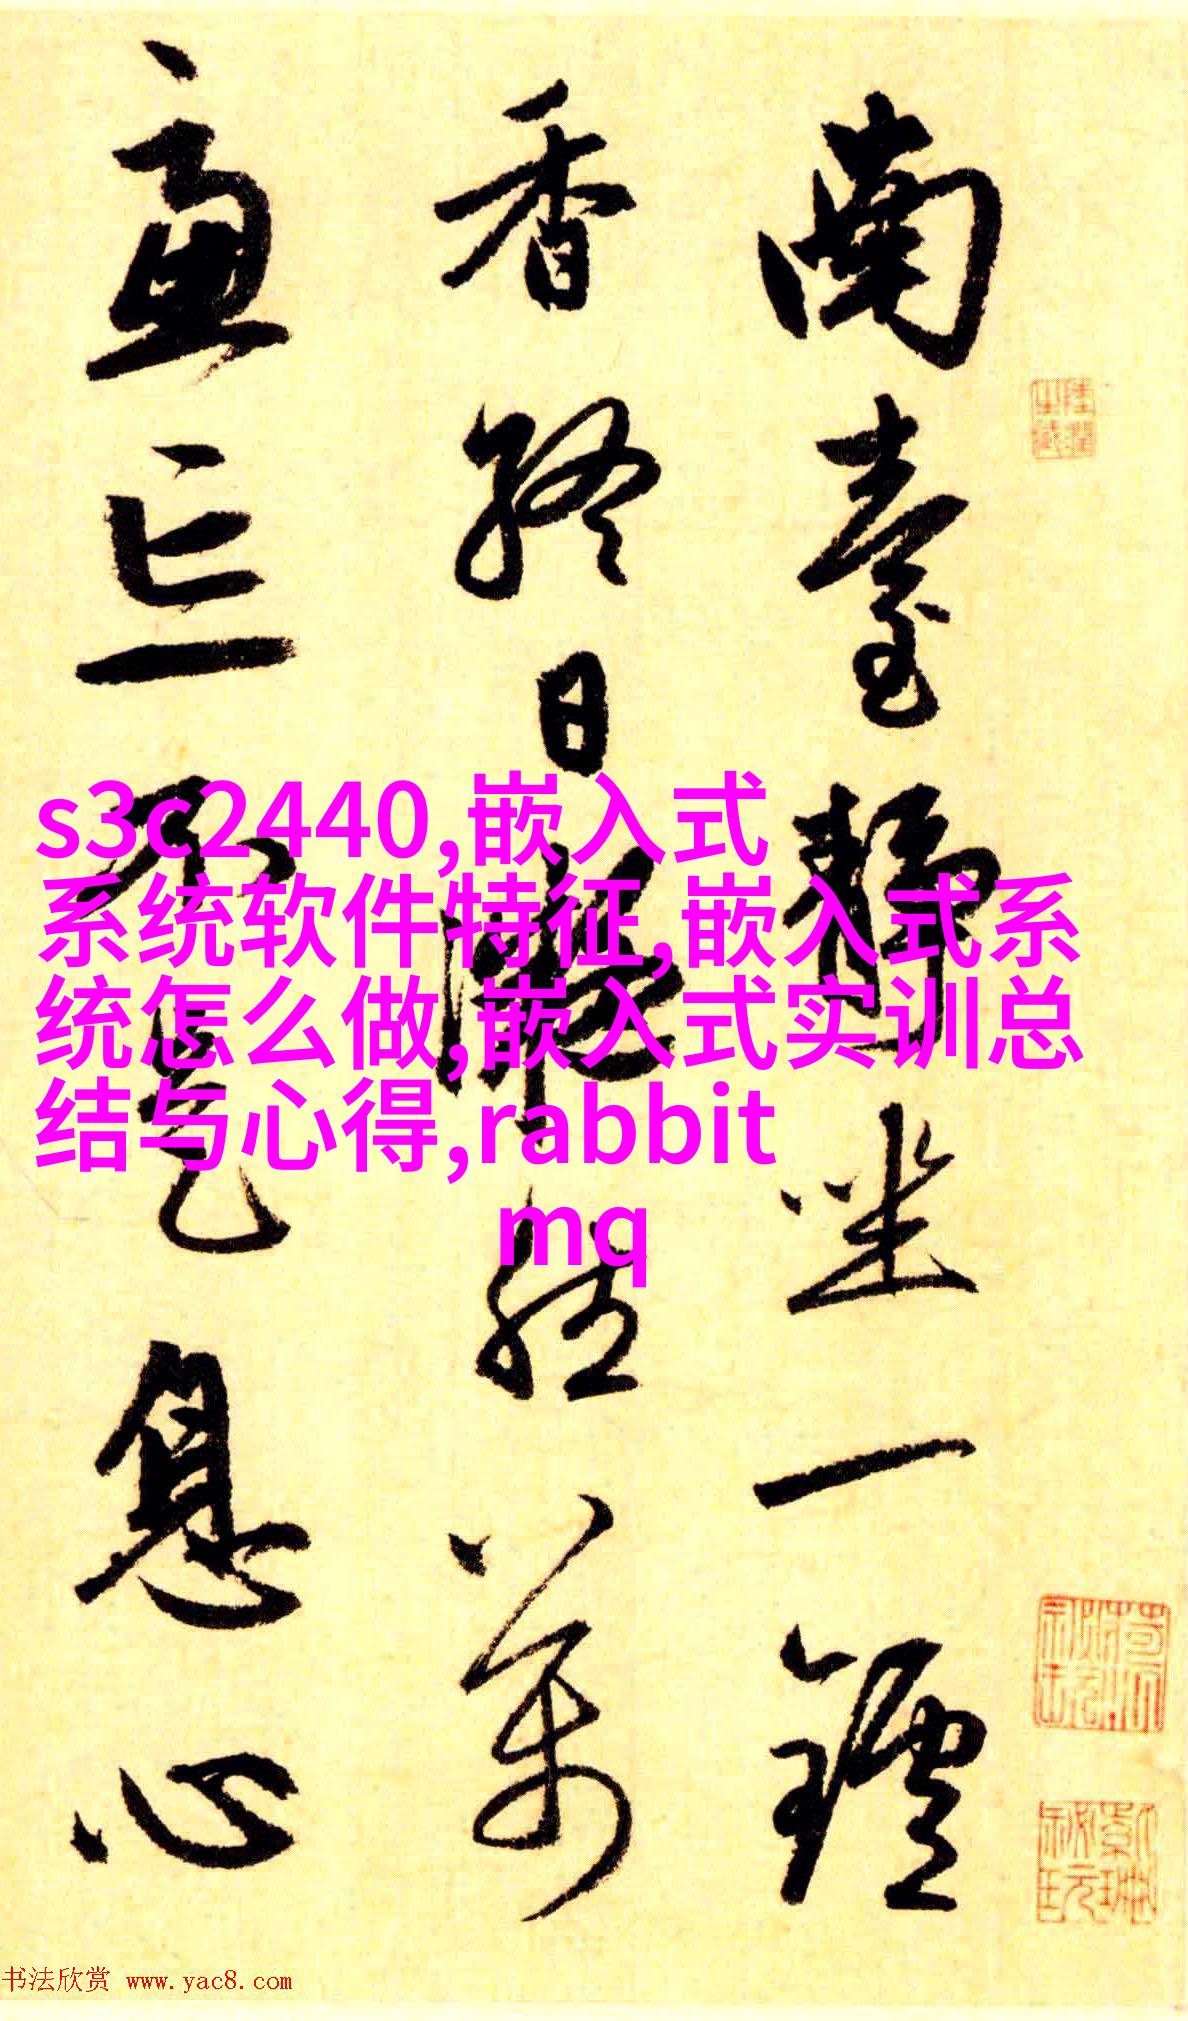 南臺靜坐一鑪
香終日凝然萬
慮亡不是息心
s3c2440,嵌入式
系统软件特征,嵌入式系
统怎么做,嵌入式实训总
结与心得,rabbit
mq
书法欣赏 www.yac8.com